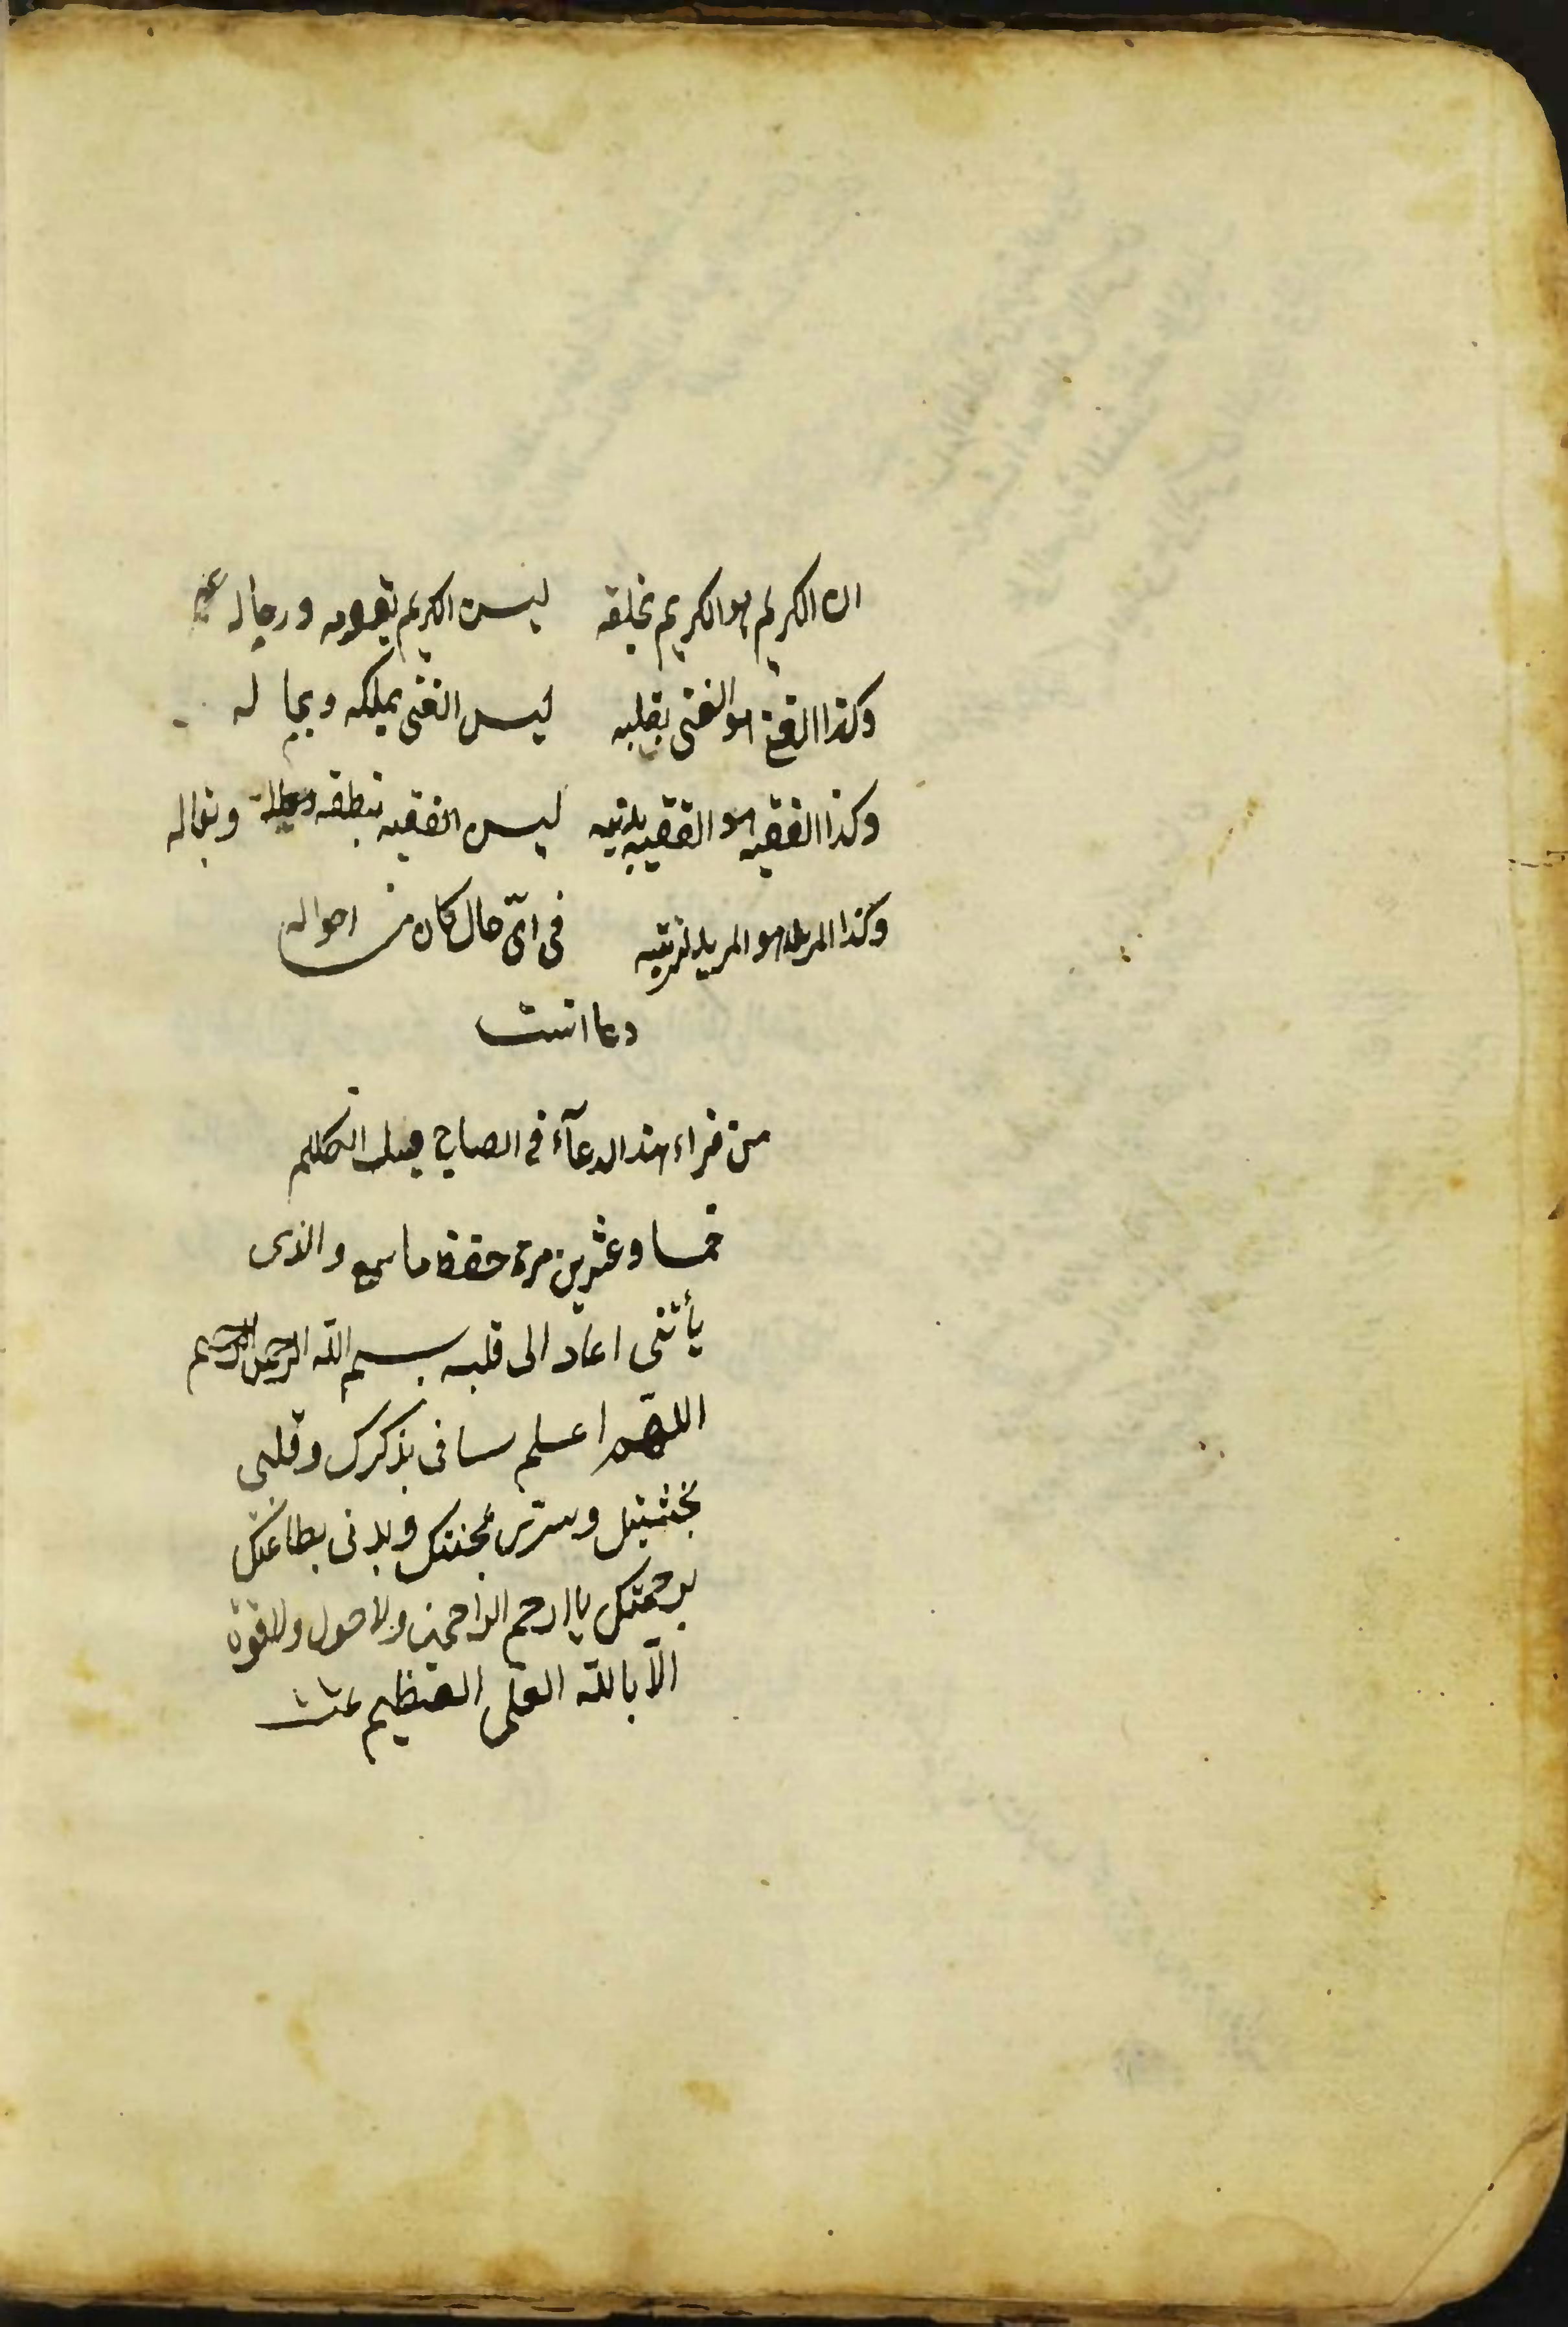 ان الكريم هو الكريم بخلقه ليس الكريم بقومه ورجاله
وكذا الغنى هو الغنى بقلبه ليس الغنى بملكه وبماله
وكذا الفقيه هو الفقيه بدينه ليس الفقيه بنطقه ومقاله
وكذا المريد هو المريد لربه فى اىّ حال كان من احواله
دعا انست
من قراء هذا الدعآء فى الصباح قبل التكلم
خمسا وعشرين مرة حفظ ما سمع والذى
يأتنى اعاد الى قلبه بسم الله الرحمن الرحيم
اللهم اعلم لسانى بذكرك وقلبى
بخشيتك وسرى بمحبتك وبدنى بطاعتك
برحمتك يا ارحم الراحمين ولا حول ولا قوة
الّا بالله العلى العظيم